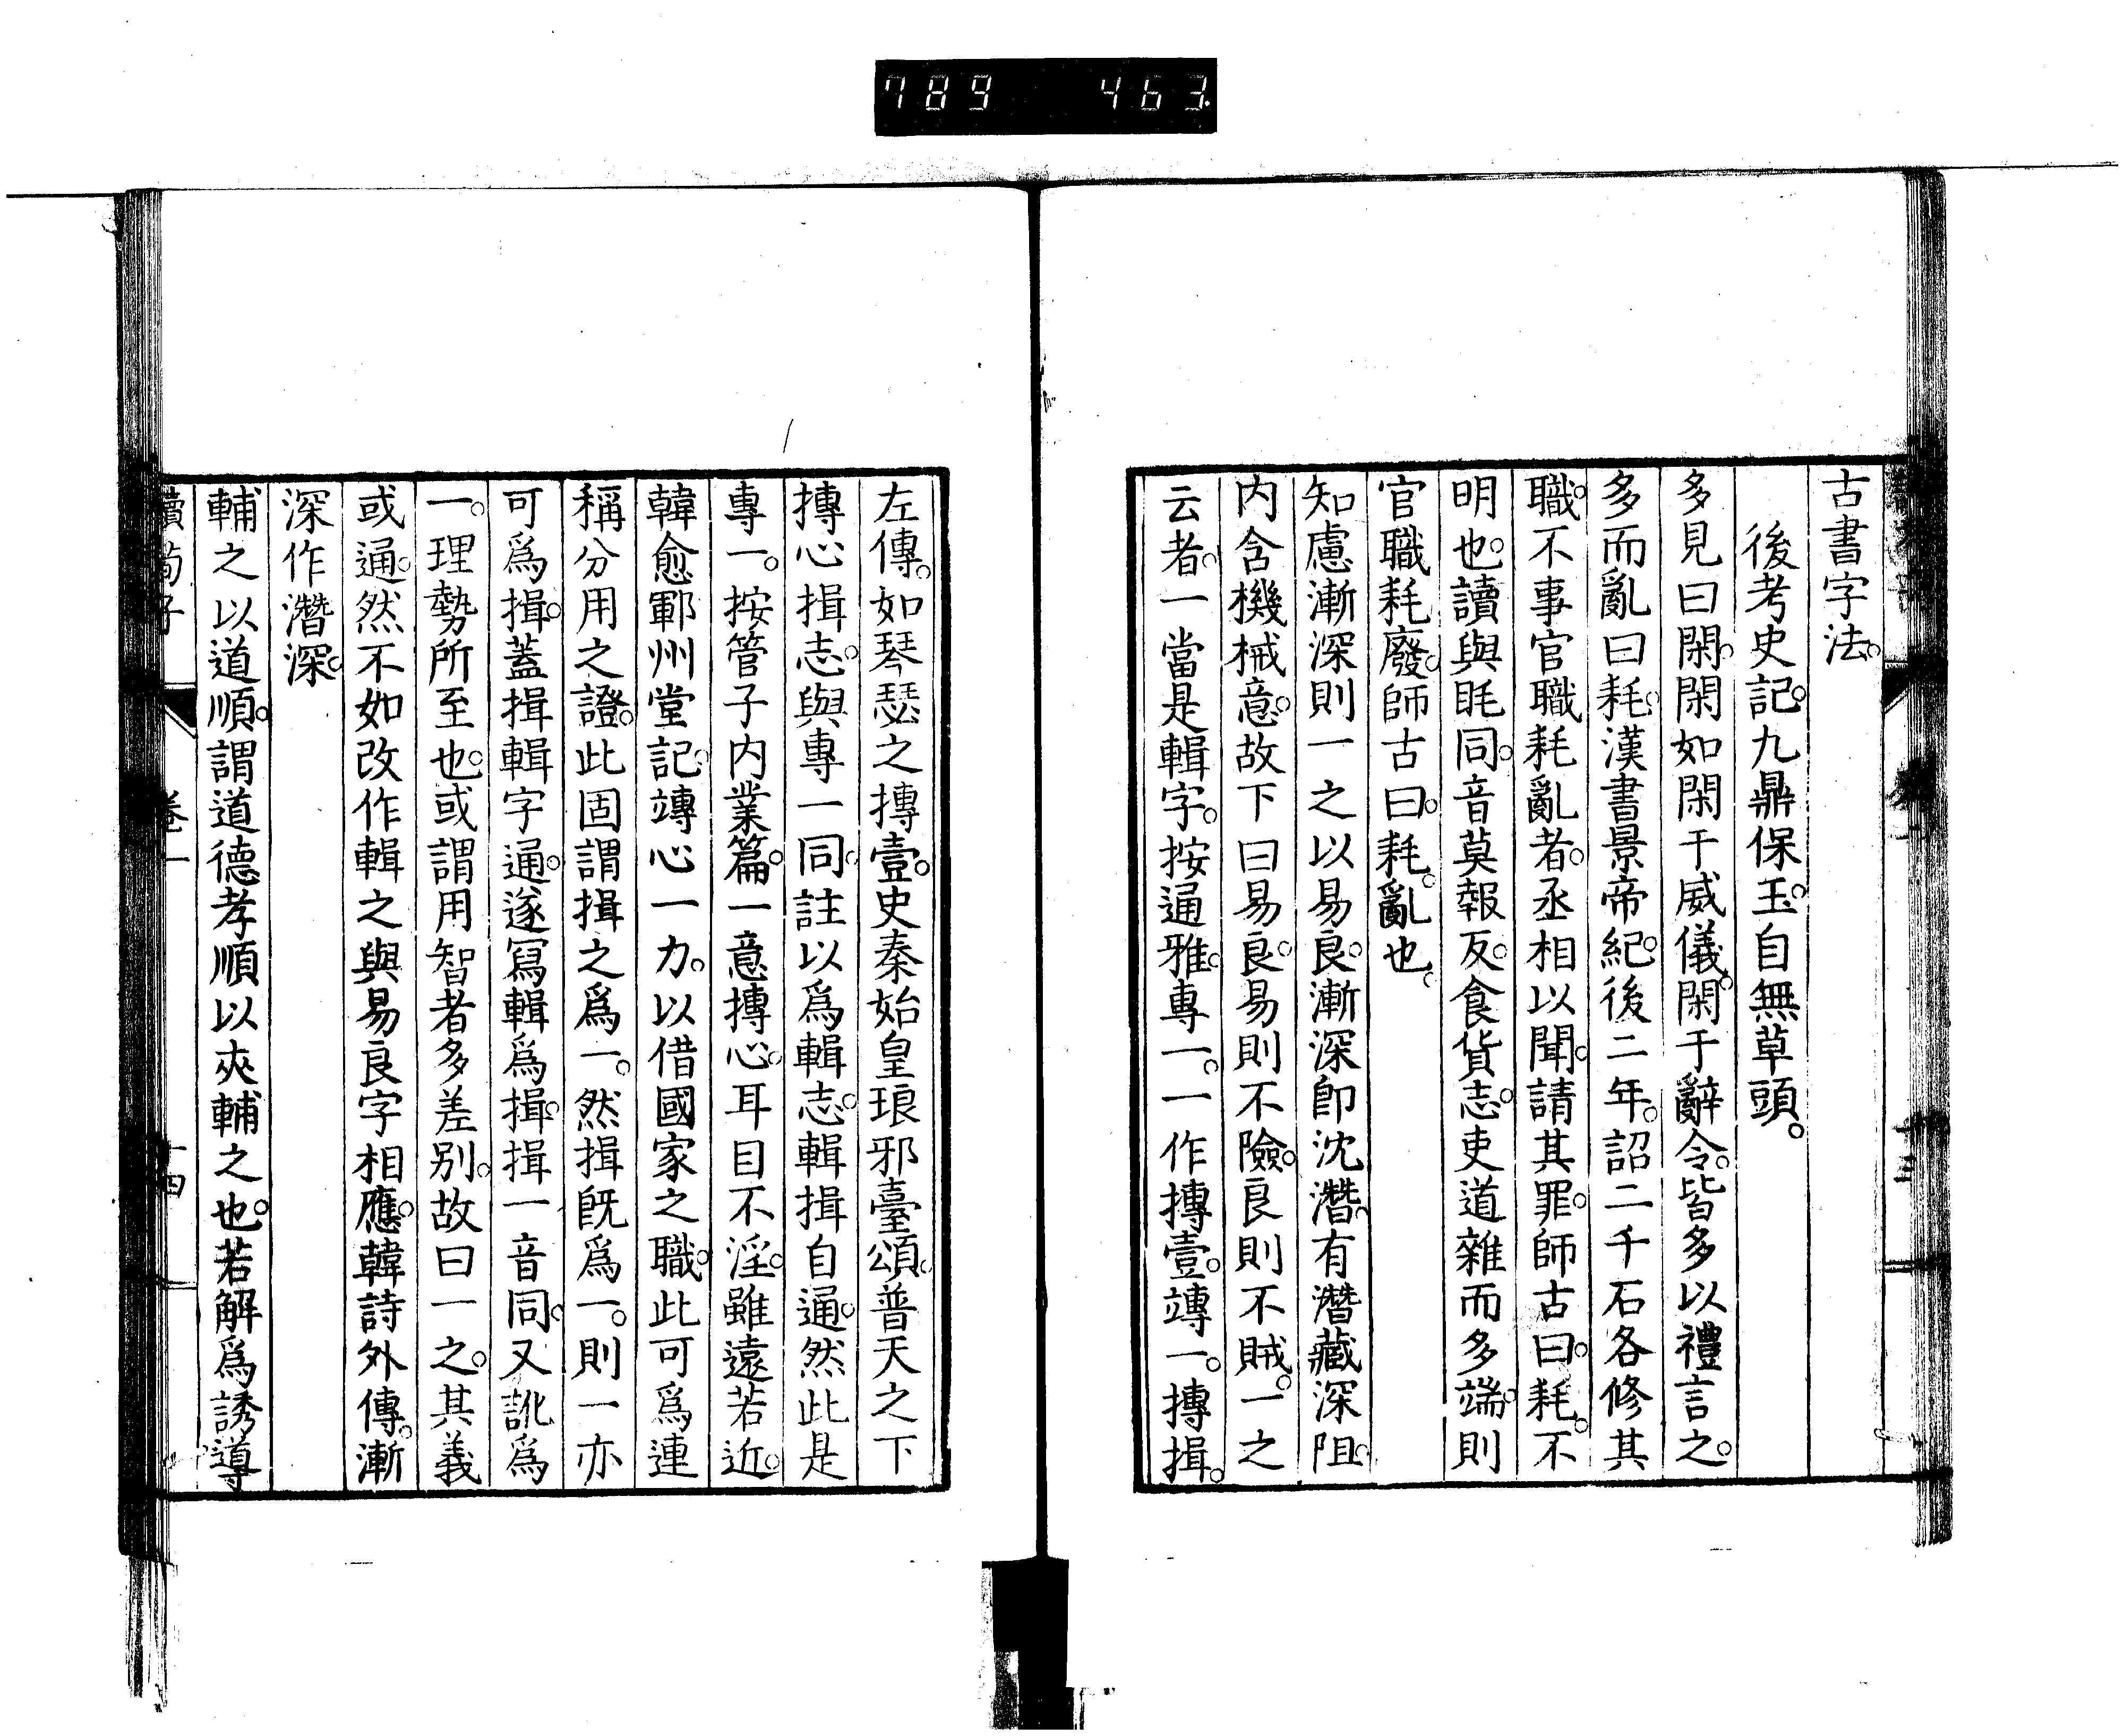 789 463
古書字法。
後考史記。九鼎保玉。自無草頭。
多見曰閑。閑如閑于威儀。閑于辭令。皆多以禮言之。
多而亂曰耗。漢書景帝紀。後二年。詔二千石各修其
職。不事官職耗亂者。丞相以聞。請其罪。師古曰。耗。不
明也。讀與眊同。音莫報反。食貨志。吏道雜而多端。則
官職耗廢。師古曰。耗。亂也。
知慮漸深則一之以易良。漸深卽沈潛。有潛藏深阻。
内含機械意。故下曰易良。易則不險。良則不賊。一之
云者。一當是輯字。按通雅。專一。一作摶壹。竱一。摶揖。
左傳。如琴瑟之摶壹。史秦始皇琅邪臺頌。普天之下
摶心揖志。與專一同。註以爲輯志。輯揖自通。然此是
專一。按管子内業篇。一意摶心。耳目不淫。雖遠若近。
韓愈鄆州堂記。竱心一力。以借國家之職。此可爲連
稱分用之證。此固謂揖之爲一。然揖旣爲一。則一亦
可爲揖。蓋揖輯字通。遂寫輯爲揖。揖一音同。又訛爲
一。理勢所至也。或謂用智者多差别。故曰一之。其義
或通。然不如改作輯之與易良字相應。韓詩外傳。漸
深作潛深。
輔之以道順。謂道德孝順以夾輔之也。若解爲誘導
讀荀子 卷一 十四